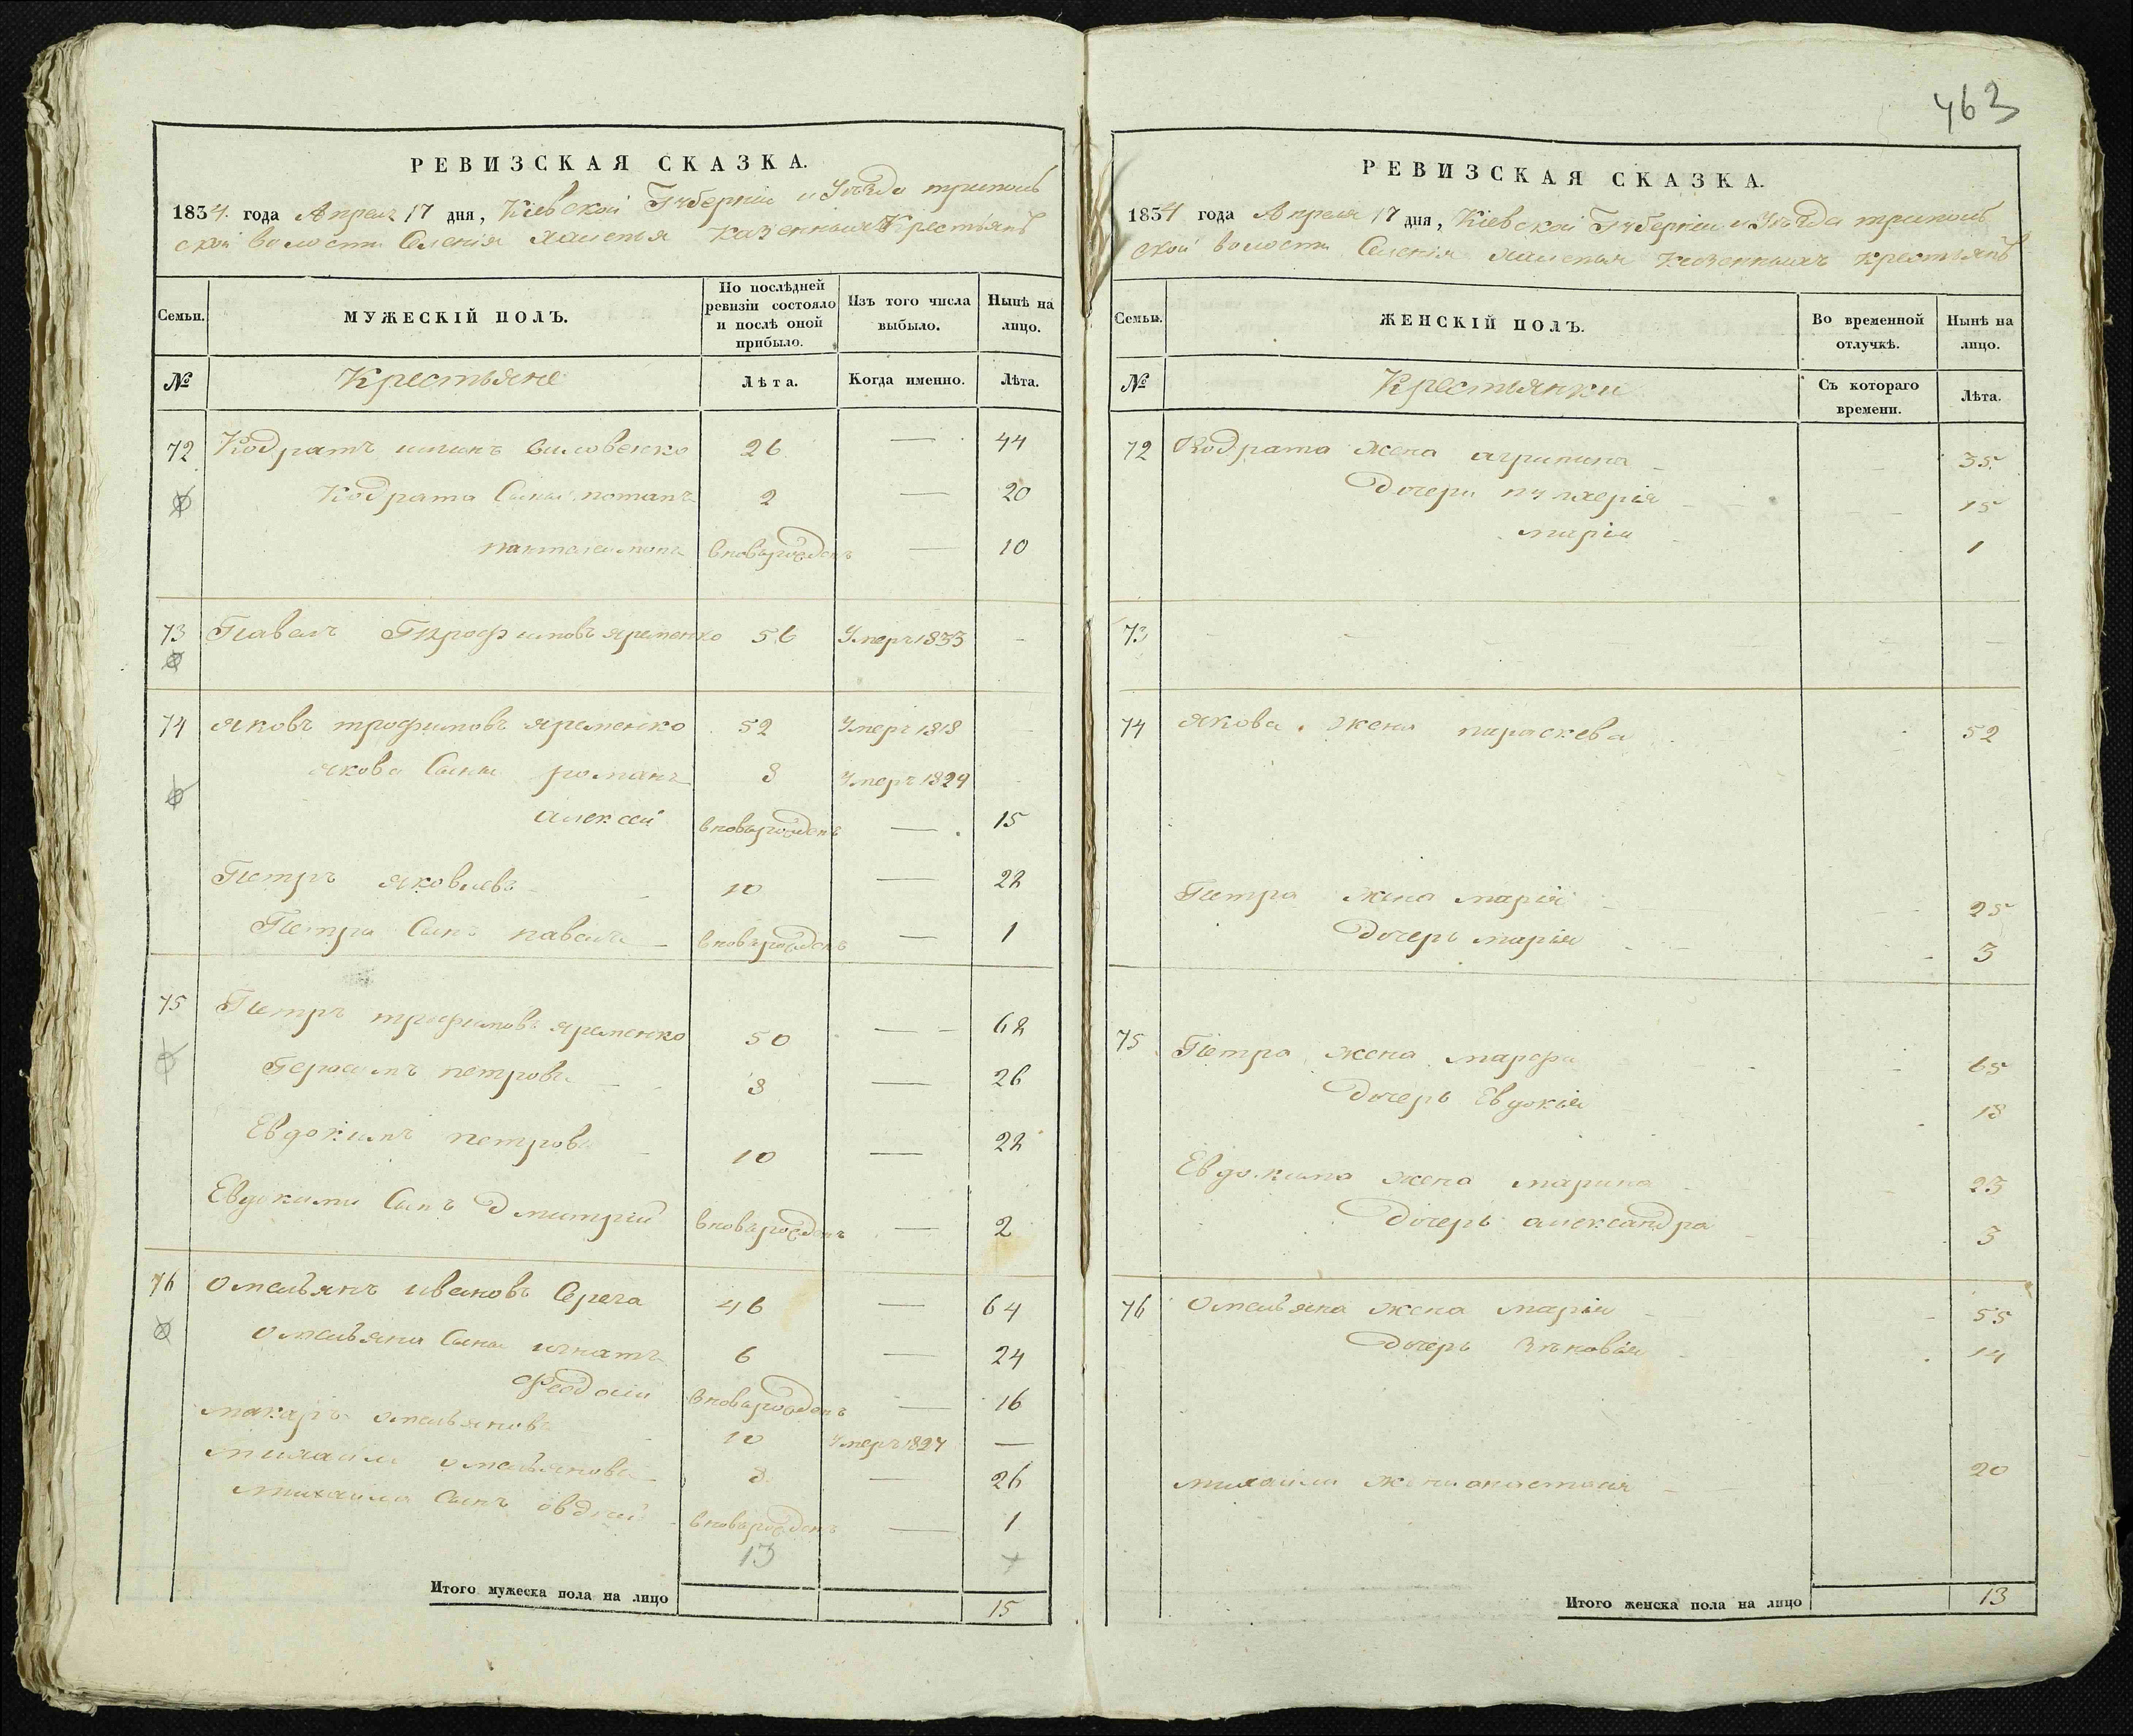 463
РЕВИЗСКАЯ СКАЗКА.
1834 года Апреля 17 дня, Кіевской Губерніи и Уѣзда триполь
ской волости Селенія халепья Казенныхъ Крестьянъ
Семьи.
МУЖЕСКІЙ ПОЛЪ.
По послѣдней ревизіи состояло и послѣ оной прибыло.
Изъ того числа выбыло.
Нынѣ на лицо.
№ Крестьяне Лѣта. Когда именно. Лѣта.
72 Кодратъ 26 — 44
Кодрата Сыны потапъ 2 — 20
пантелеимонъ вновьрожденъ — 10
73 Павелъ Трофимовъ яременко 56 Умеръ 1833 -
74 яковъ трофимовъ яременко 52 Умеръ 1818
якова Сыны романъ 8 Умеръ 1829
алексей вновьрожденъ — 15
Петръ яковлевъ 10 — 22
Петра Сынъ павелъ вновьрожденъ — 1
75 Петръ трофимовъ яременко 50 — 68
Герасимъ петровъ 8 — 26
Евдокимъ петровъ 10 — 28
Евдокима Сынъ Дмитрій вновьрожденъ — 2
76 Омельянъ ивановъ 46 — 64
омельяна Сыны игнатъ 6 — 24
Феодосій вновьрожденъ — 16
макаръ омельяновъ 10 Умеръ 1827 —
михаило омельяновъ 8 — 26
михаила Сынъ овдей вновьрожденъ — 1
13
Итого мужеска пола на лицо 15
РЕВИЗСКАЯ СКАЗКА.
1834 года Апреля 17 дня, Кіевской Губерніи и Уѣзда триполь
ской волости Селенія халепья Казенныхъ крестьянъ
Семьи.
ЖЕНСКІЙ ПОЛЪ.
Во временной отлучкѣ.
Нынѣ на лицо.
№ Крестьянки Съ котораго времени. Лѣта.
72 Кодрата жена агрипина 35
Дочери пулхерія 15
марія 1
73
74 якова жена параскева 52
Петра жена марія 25
Дочерь марія 3
75 Петра жена марфа 65
Дочерь Евдокія 18
Евдокима жена марина 23
Дочерь александра 3
76 Омельяна жена марія 55
Дочерь Зѣновія 14
михаила жена анастасія 20
Итого женска пола на лицо 13